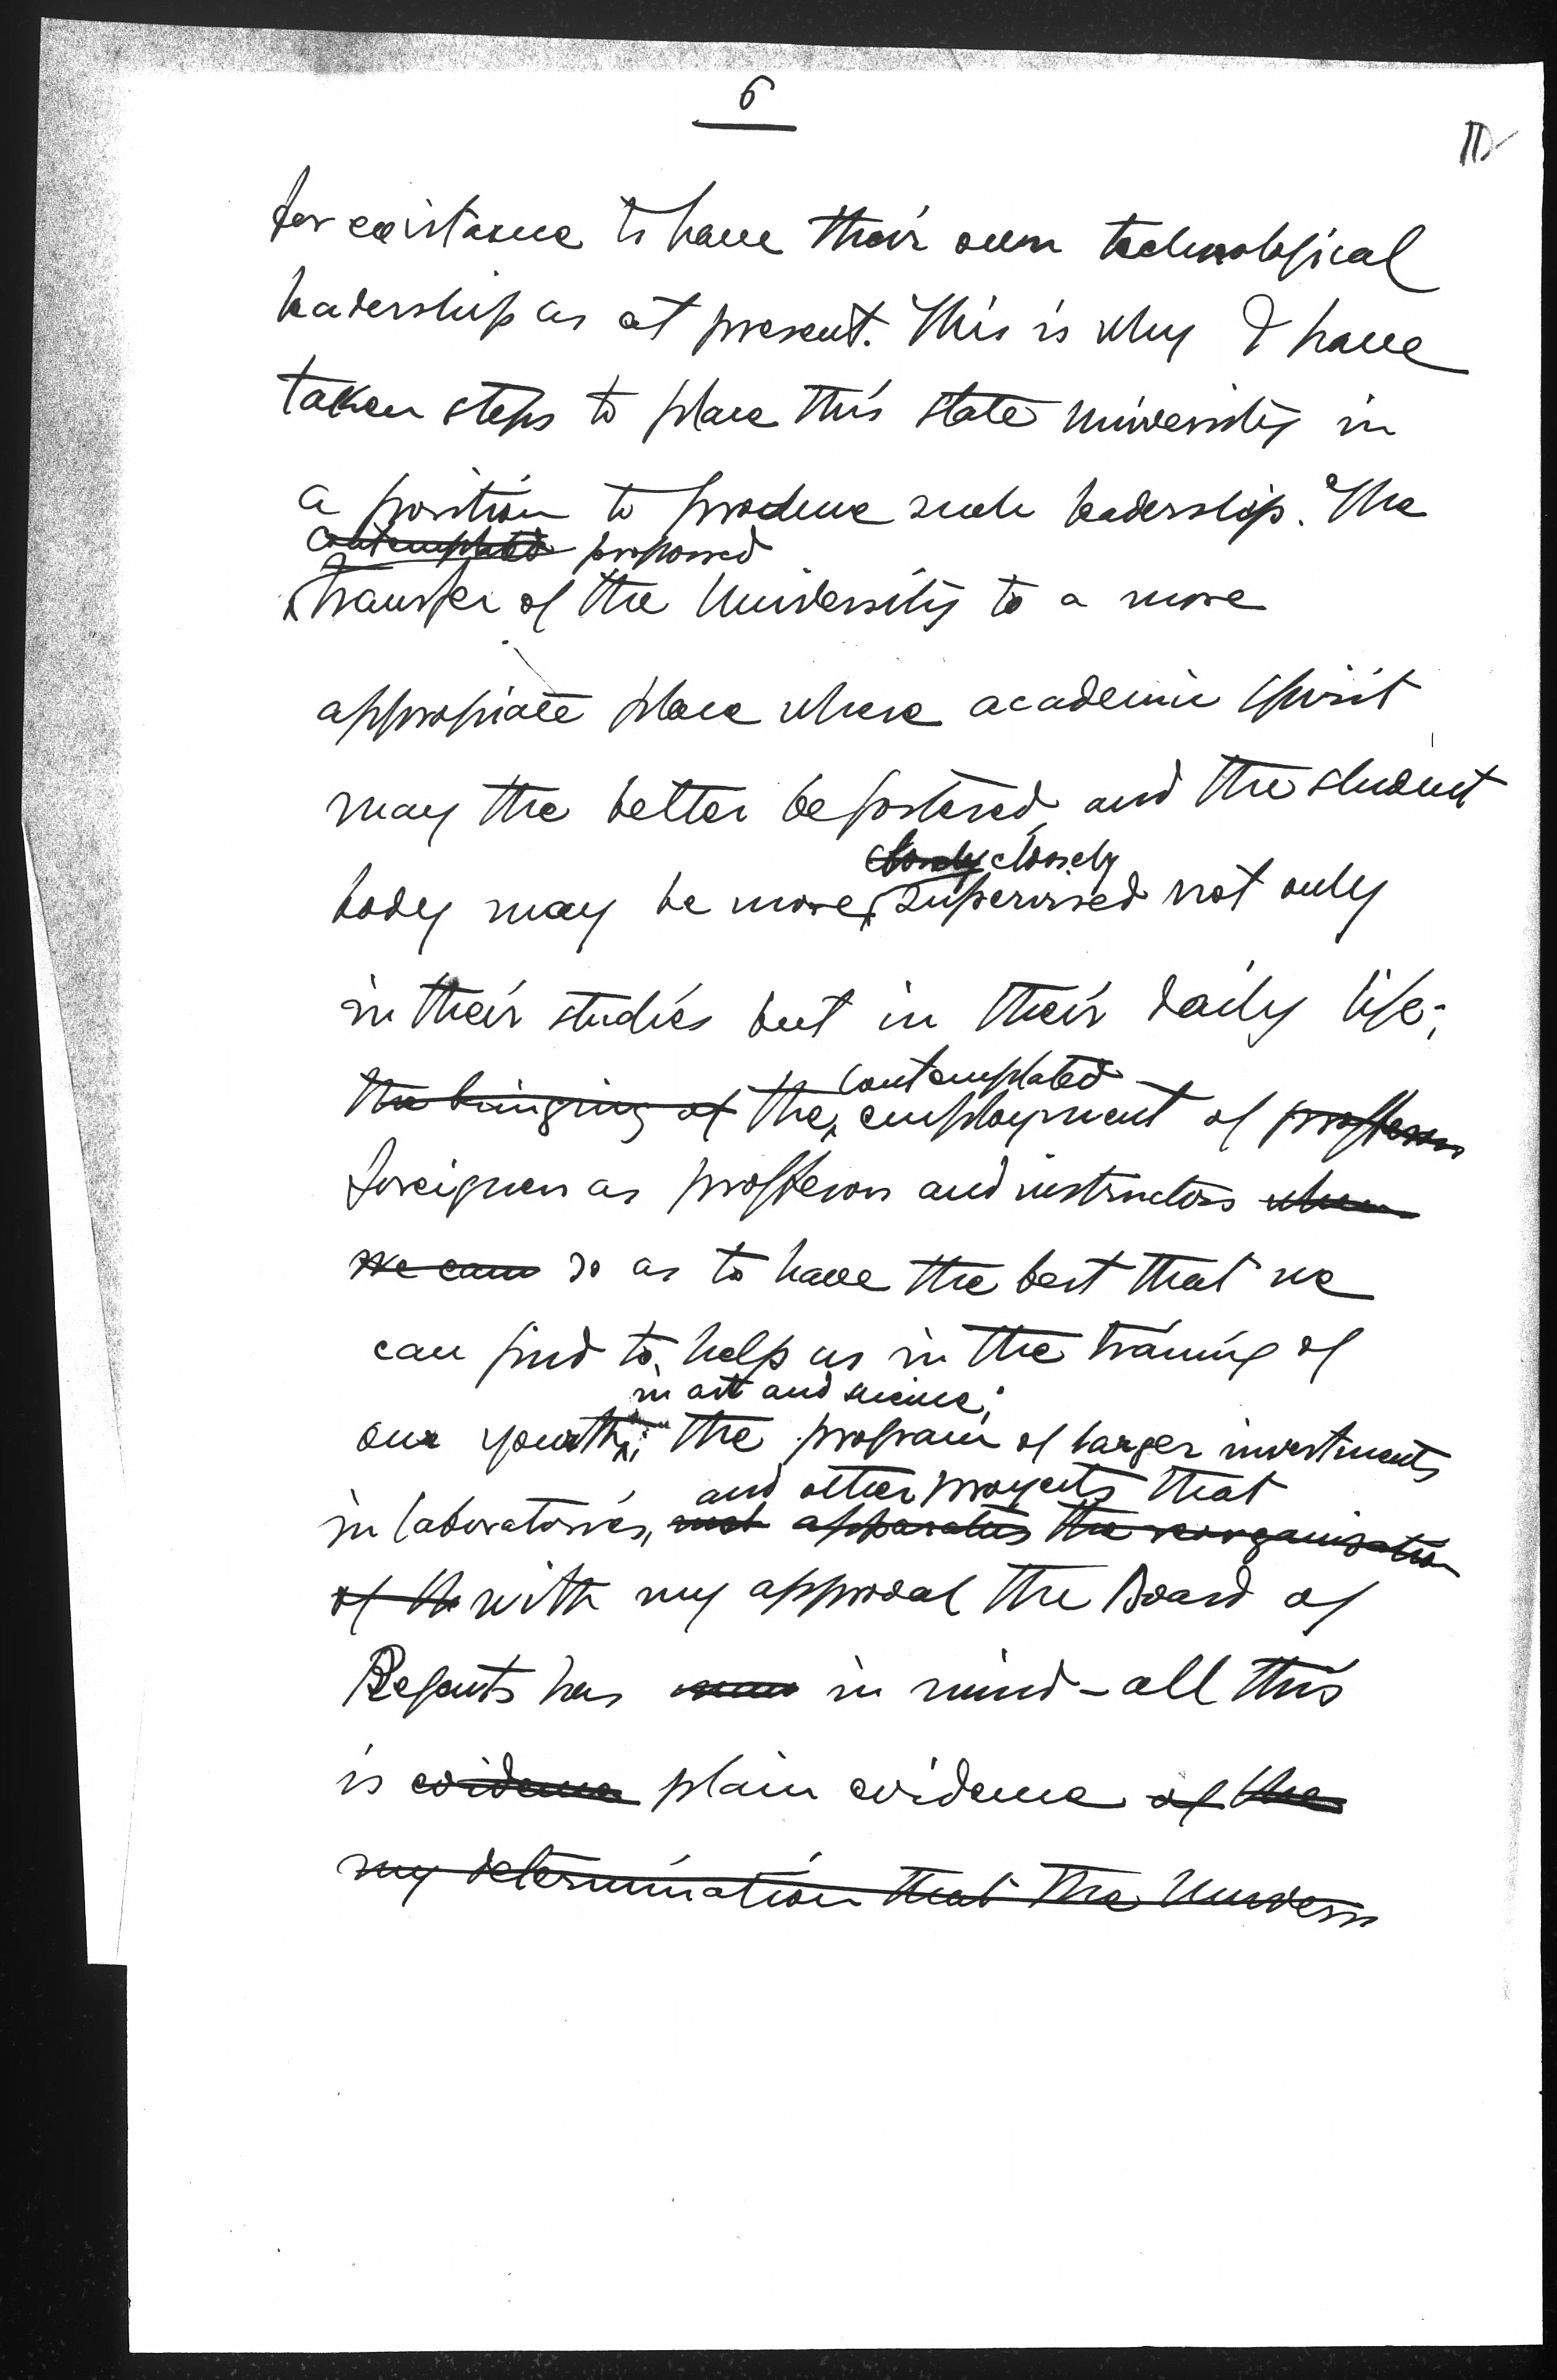 6
for existance to have their own technological
leadership as at present. This is why I have
taken steps to place this state University in
a position to produce such leadership. The
contemplated proposed
transfer of the University to a more
appropiate place where academic spirit
may the better be fostered, and the student
closely closely
body may be more supervised not only
in their studies but in their daily life;
contemplated
the bringing of the employment of proffesors
foreigners as proffesors and instructors when
we can so as to have the best that we
can find to help us in the training of
in art and science;
our youth; the program of larger investments
and other proyects that
in laboratories, and apparatus the reorganisation
of the with my approval the Board of
Regents has in mind - all this
is evidence plain evidence of the
my determination that the Univers